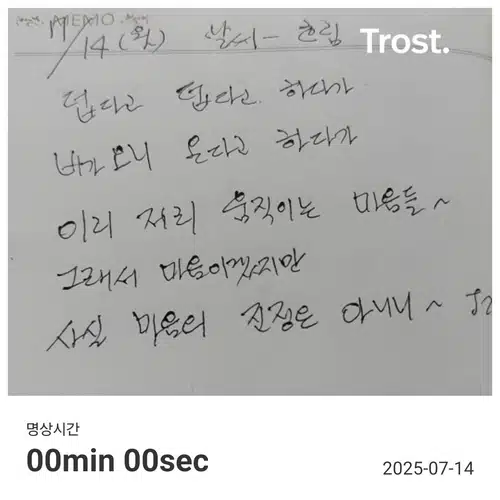 MEMO
7/14 (월) 날씨 - 흐림
Trost.
덥다고 덥다고 하다가
비가 오니 온다고 하다가
이리 저리 움직이는 마음들~
그래서 마음이겠지만
사실 마음의 진정은 아니니~
명상시간
00min 00sec
2025-07-14